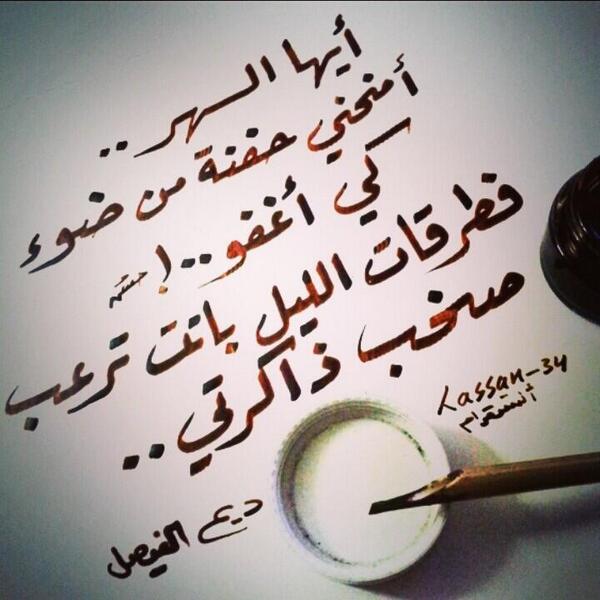 أيها السهر ..
أمنحني حفنة من ضوء
كي أغفو .. !
فطرقات الليل باتت ترعب
صخب ذاكرتي ..
Lassan-34
أنستقرام
ديم الفيصل